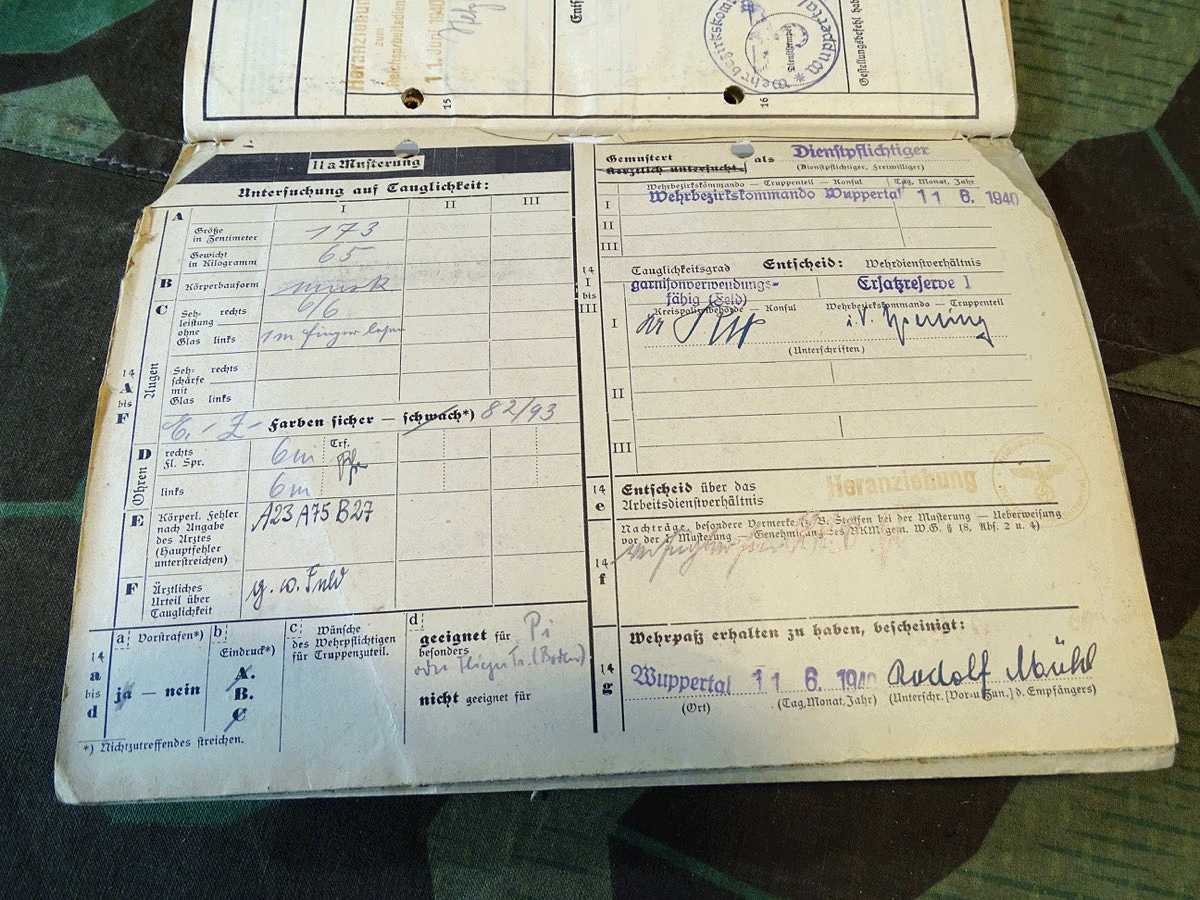 Heranziehung
zum
Reichsarbeitsdien
11. Juni 1940
15
Wehrbezirkskom
Wuppertal
Dienststempel
16
Gestellungsbefehl hab
IIa Musterung
Untersuchung auf Tauglichkeit:
I II III
A
Größe
in Zentimeter 173
Gewicht
in Kilogramm 65
B Körperbauform musk
C Seh- rechts 6/6
leistung
ohne
Glas links 1 m Finger lesen
Augen
Seh- rechts
schärfe
mit
Glas links
14
A
bis
F
Farben sicher – schwach*) 82/93
D rechts
Fl. Spr. 6m Trf.
Ohren
links 6m
E Körperl. Fehler A23 A75 B27
nach Angabe
des Arztes
(Hauptfehler
unterstreichen)
F Ärztliches g. v. Feld
Urteil über
Tauglichkeit
14
a
bis
d
a Vorstrafen*)
ja – nein
b
Eindruck*)
A.
B.
C
c Wünsche
des Wehrpflichtigen
für Truppenzuteil.
d
geeignet für Pi
besonders
oder Flieger Tr. (Boden)
nicht geeignet für
*) Nichtzutreffendes streichen.
Gemustert
Aerztlich untersucht als Dienstpflichtiger
(Dienstpflichtiger, Freiwilliger)
Wehrbezirkskommando – Truppenteil – Konsul Tag, Monat, Jahr
I Wehrbezirkskommando Wuppertal 11 6. 1940
II
III
14
I
bis
III
Entscheid:
Tauglichkeitsgrad Wehrdienstverhältnis
garnisonverwendungs- Ersatzreserve I
fähig (Feld)
Kreispolizeibehörde – Konsul Wehrbezirkskommando – Truppenteil
I i. V.
(Unterschriften)
II
III
14
e
Entscheid über das
Arbeitsdienstverhältnis Heranziehung
14
f
Nachträge, besondere Vermerke (z. B. Strafen bei der Musterung – Ueberweisung
vor der 1. Musterung – Genehmigung des RKM gem. W.G. § 18, Abs. 2 u. 4)
14
g
Wehrpaß erhalten zu haben, bescheinigt:
Wuppertal 11 6. 1940 Rudolf Mühl
(Ort) (Tag, Monat, Jahr) (Unterschr. [Vor- u. Zun.] d. Empfängers)